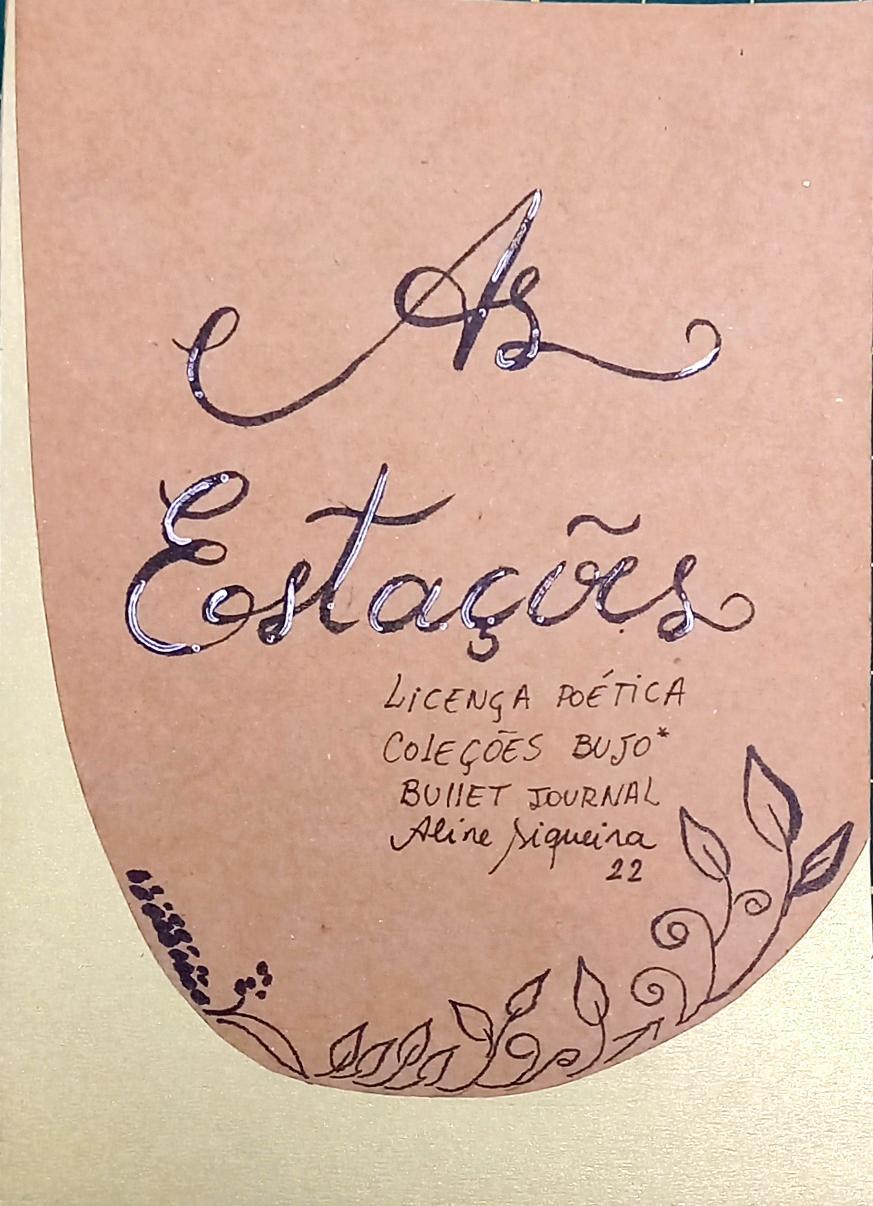 As
Estações
LICENÇA POÉTICA
COLEÇÕES BUJO*
BULLET JOURNAL
Aline Siqueira
22